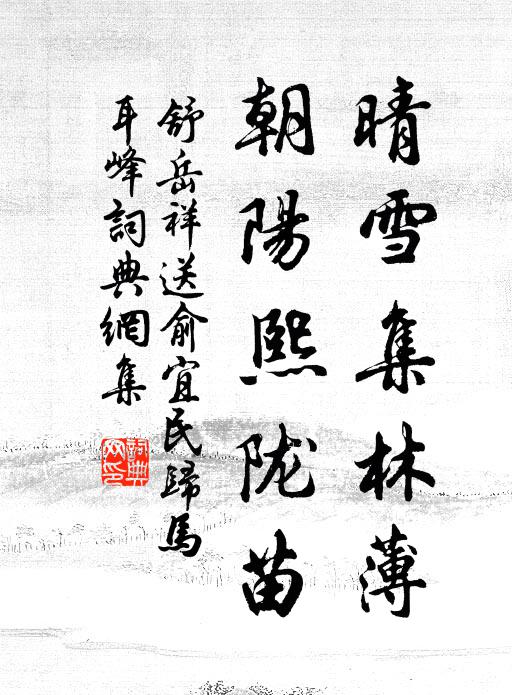 晴雪集林薄
朝陽熙陇苗
舒岳祥送俞宜民歸馬
耳峰詞典網集
詞典網印